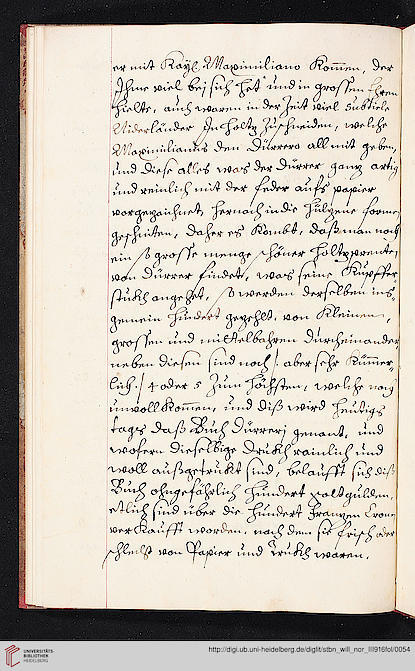 er mit Kaÿl. Maximiliano Kom̄en, der
Ihne viel beÿ sich het und in grossen Ehren
hielte, auch waren in der Zeit viel subtiele
Niderländer In holtz Zuschneiden, welche
Maximilianus den Dürrero all mit geben,
und diese alles was der Dürrer ganz artig
und reinlich mit der feder aufs papier
vorgezaichnet, hernach in die hülzene forme
geschniten, daher es Kombt, daß man noch
ein so grosse menge schöner holtz
von Dürrer findet, was seine Kupffer
stukh anget, so werden derselben ins
gemein hundert gezehlt, von Kleinen,
grossen und mittelbahren durcheinander,
neben diesen sind noch /: aber sehr Küm̄er
lich :/ 4 oder 5 Zum höchsten, welche noch
unvollKom̄en, und diß wird heütigs
tags daß Buch Dürrerj genant, und
wofern dieselbige drukh rainlich und
woll außgetrukt sind, belaufft sich diß
Buch ohngefährlich hundert goltgulden,
etlich sind über die hundert franzen Cronen
verkaufft worden, nach dem sie frisch oder
schlecht von Papier und Trukh waren.
UNIVERSITÄTS-
BIBLIOTHEK
HEIDELBERG
http://digi.ub.uni-heidelberg.de/diglit/stbn_will_nor_III916fol/0054